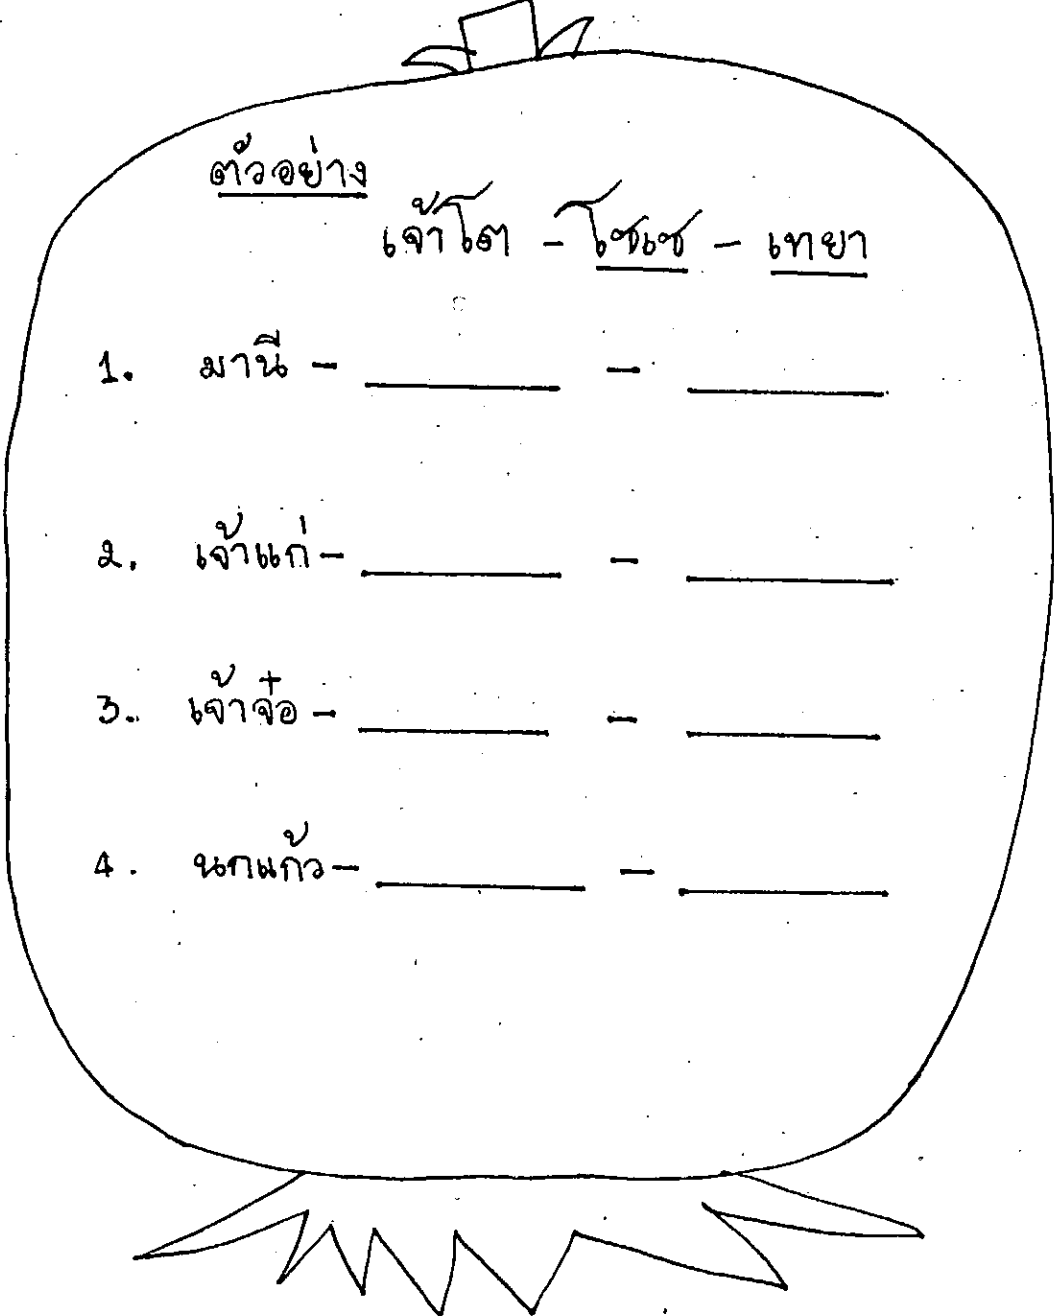 ตัวอย่าง
เจ้าโต - โซเซ - เทยา
1. มานี - ________ - ________
2. เจ้าแก่ - ________ - ________
3. เจ้าจ๋อ - ________ - ________
4. นกแก้ว - ________ - ________